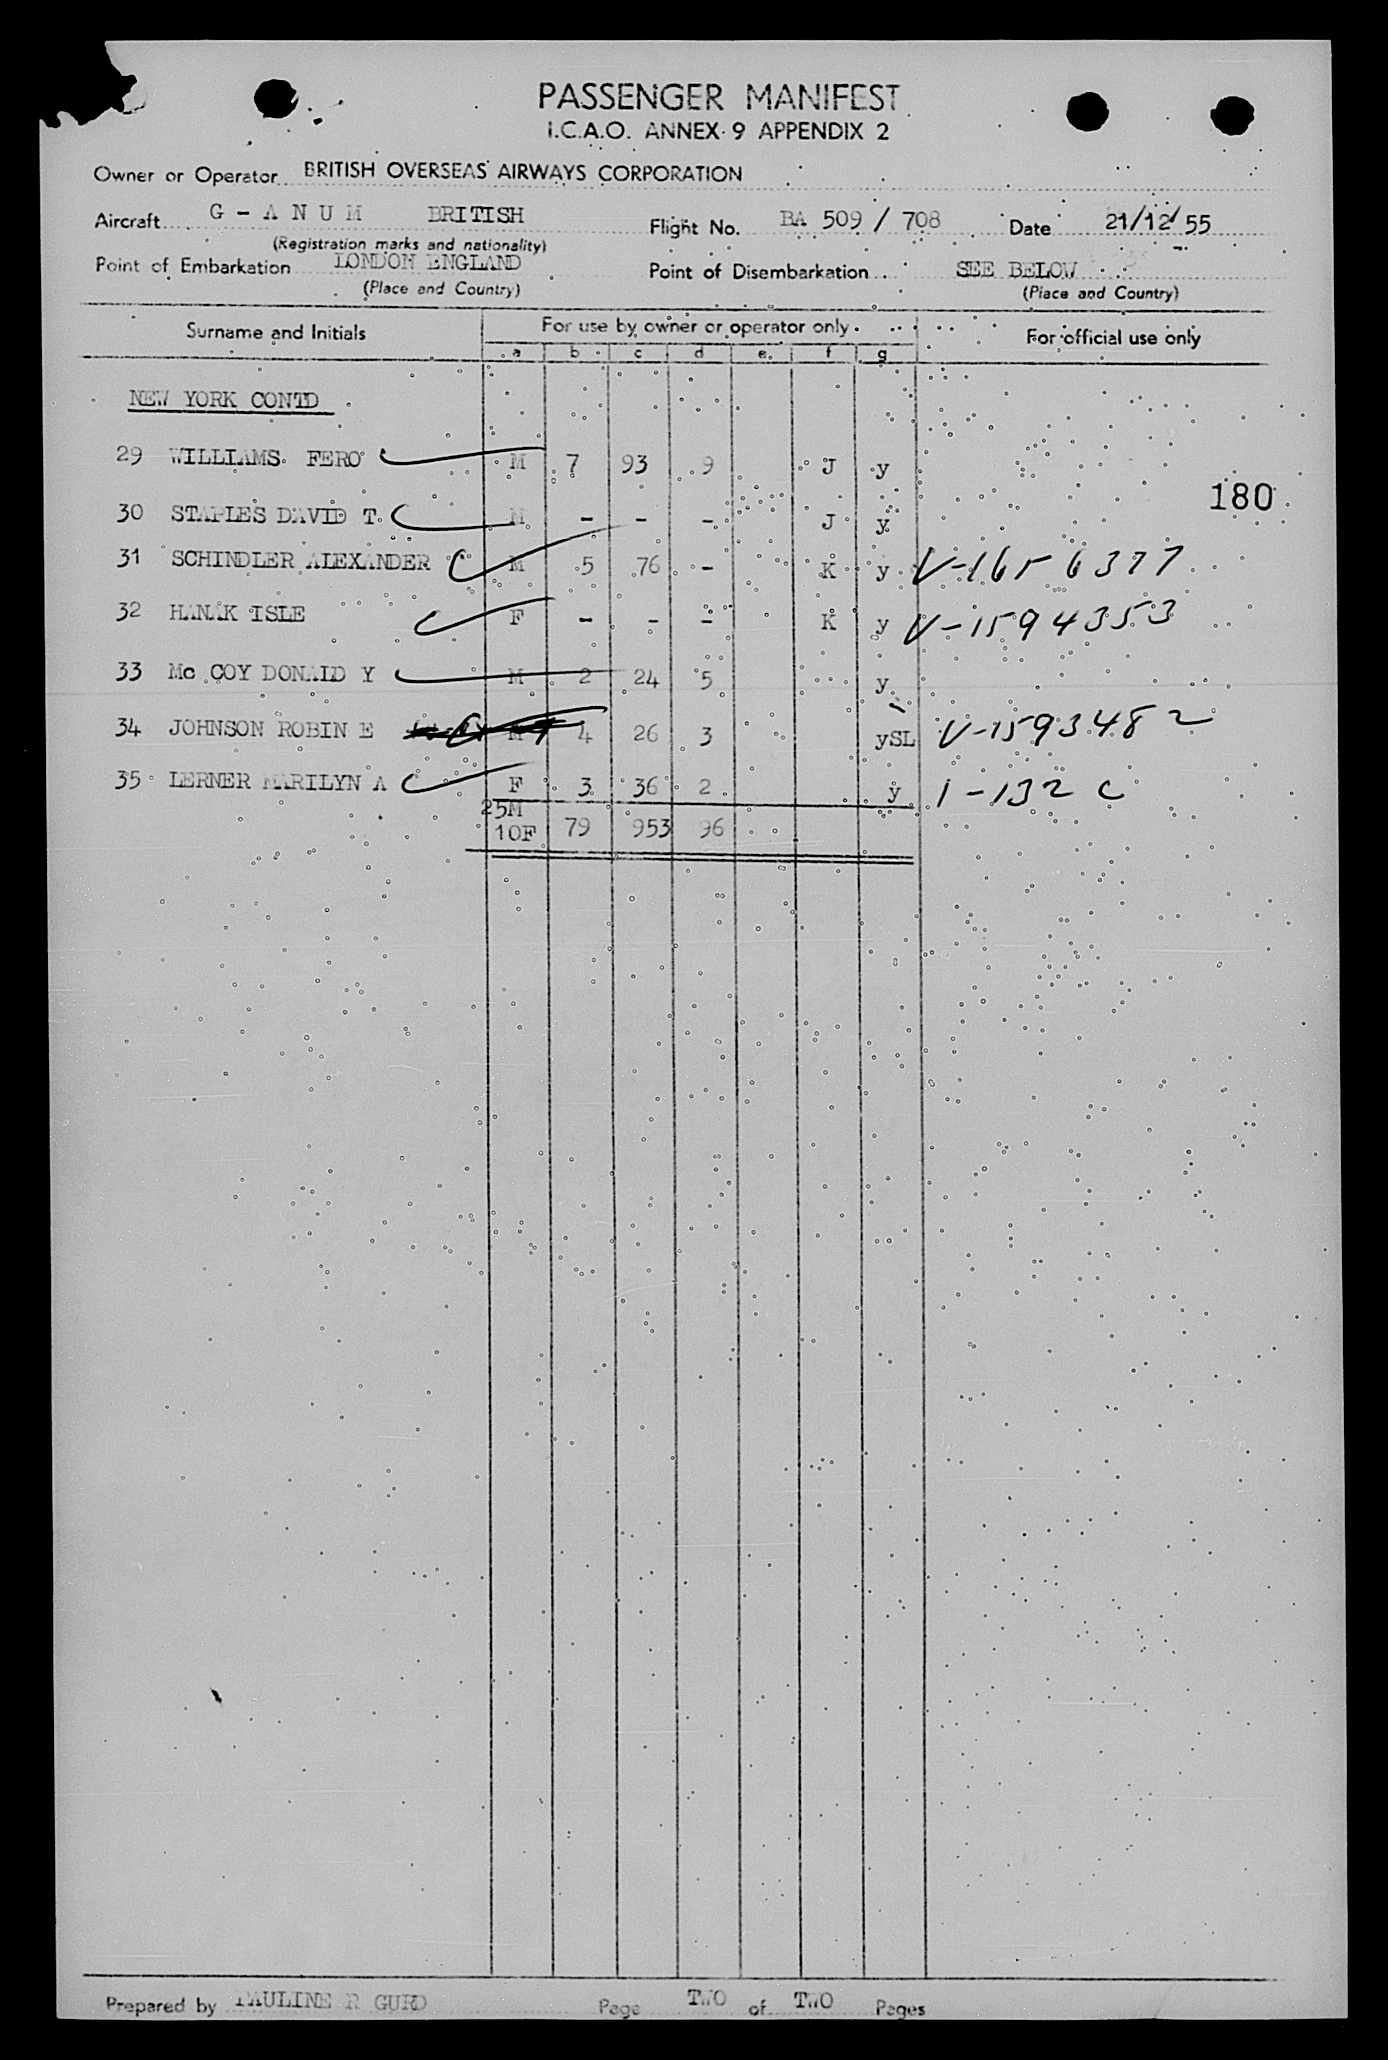 PASSENGER MANIFEST
I.C.A.O. ANNEX 9 APPENDIX 2
Owner or Operator BRITISH OVERSEAS AIRWAYS CORPORATION
Aircraft G - A N U M BRITISH Flight No. BA 509 / 708 Date 21/12/55
(Registration marks and nationality)
Point of Embarkation LONDON ENGLAND Point of Disembarkation SEE BELOW
(Place and Country) (Place and Country)
Surname and Initials For use by owner or operator only For official use only
a b c d e f g
NEW YORK CONTD
29 WILLIAMS FERO M 7 93 9 J y
180
30 STAPLES DAVID T. M - - - J y
31 SCHINDLER ALEXANDER M 5 76 - K y V-1656377
32 HANAK ISLE F - - - K y V-1594353
33 Mc COY DONALD Y M 2 24 5 y
34 JOHNSON ROBIN E M 4 26 3 ySL V-1593482
35 LERNER MARILYN A F 3 36 2 y 1-132 C
25M
10F 79 953 96
Prepared by PAULINE R GURD Page TWO of TWO Pages